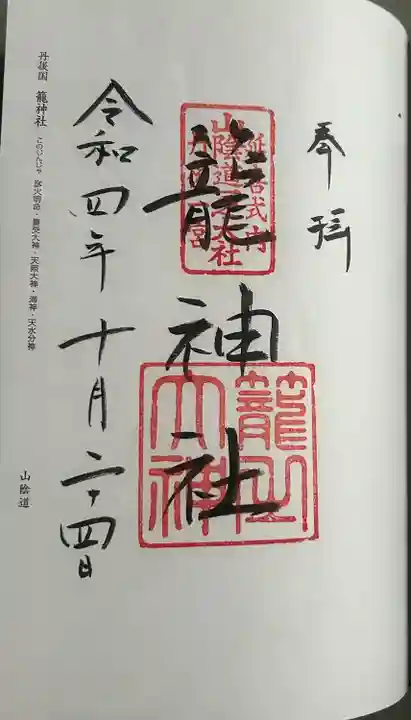 奉拝
延喜式内
山陰道一之大社
丹後一宮
籠神社
籠之大神
令和四年十月二十四日
丹後国 籠神社 このじんじゃ 彦火明命・豊受大神・天照大神・海神・天水分神
山陰道